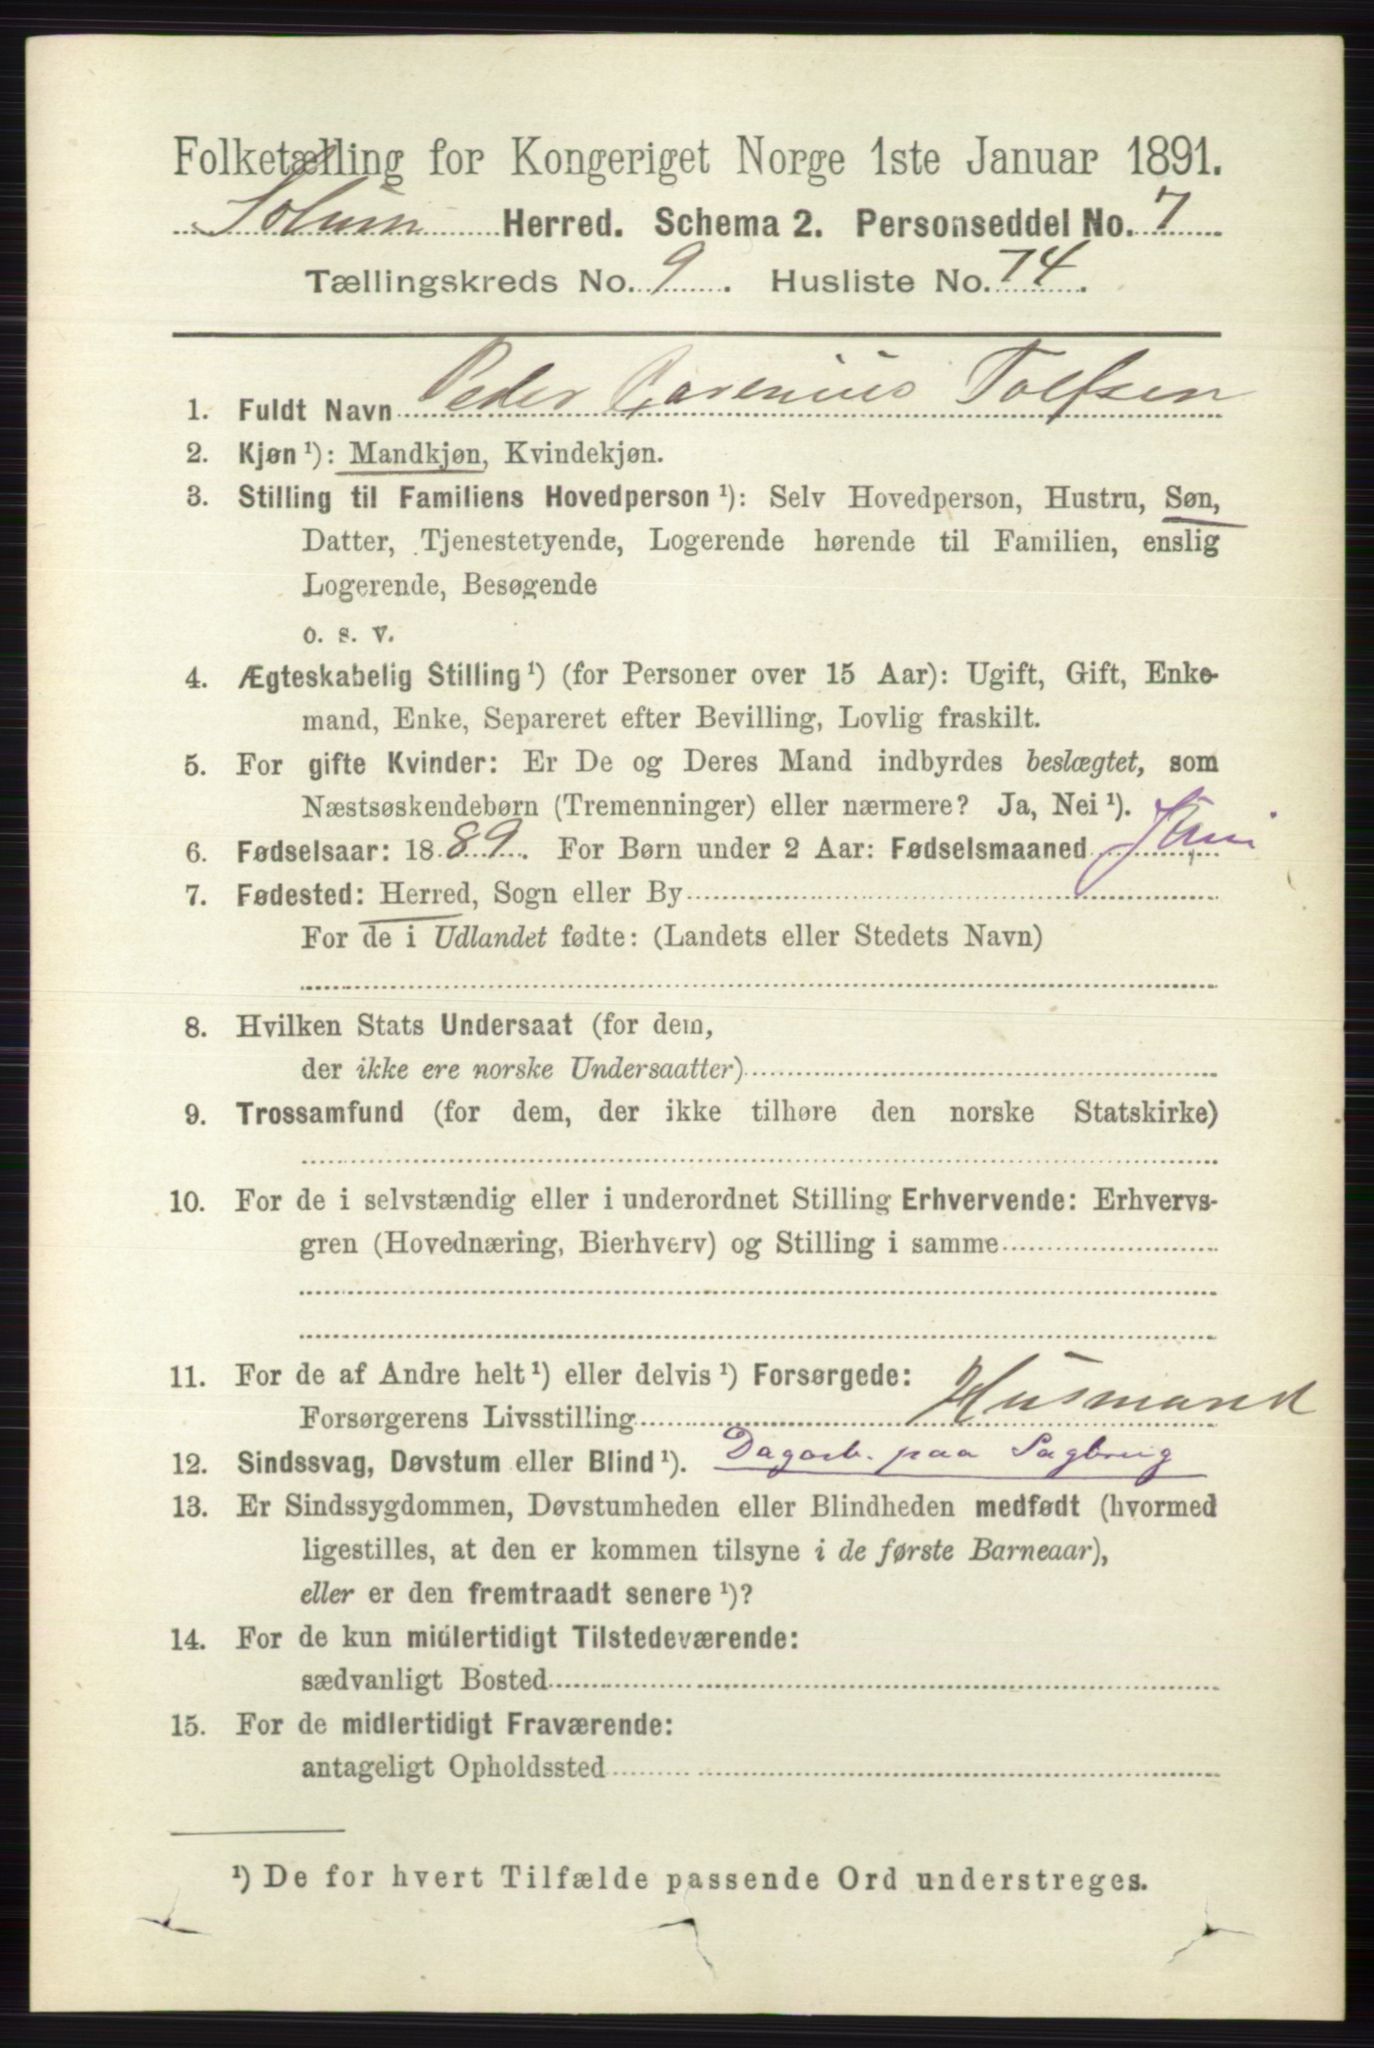 Folketælling for Kongeriget Norge 1ste Januar 1891.
Solum Herred. Schema 2. Personseddel No. 7
Tællingskreds No. 9. Husliste No. 74.
1. Fuldt Navn Peder Tolfsen
2. Kjøn ¹): Mandkjøn, Kvindekjøn.
3. Stilling til Familiens Hovedperson ¹): Selv Hovedperson, Hustru, Søn,
Datter, Tjenestetyende, Logerende hørende til Familien, enslig
Logerende, Besøgende
o. s. v.
4. Ægteskabelig Stilling ¹) (for Personer over 15 Aar): Ugift, Gift, Enke-
mand, Enke, Separeret efter Bevilling, Lovlig fraskilt.
5. For gifte Kvinder: Er De og Deres Mand indbyrdes beslægtet, som
Næstsøskendebørn (Tremenninger) eller nærmere? Ja, Nei ¹).
6. Fødselsaar: 1889. For Børn under 2 Aar: Fødselsmaaned
7. Fødested: Herred, Sogn eller By
For de i Udlandet fødte: (Landets eller Stedets Navn)
8. Hvilken Stats Undersaat (for dem,
der ikke ere norske Undersaatter)
9. Trossamfund (for dem, der ikke tilhøre den norske Statskirke)
10. For de i selvstændig eller i underordnet Stilling Erhvervende: Erhvervs-
gren (Hovednæring, Bierhverv) og Stilling i samme
11. For de af Andre helt ¹) eller delvis ¹) Forsørgede:
Forsørgerens Livsstilling Husmand
12. Sindssvag, Døvstum eller Blind ¹). Dagarb. paa Sagbrug
13. Er Sindssygdommen, Døvstumheden eller Blindheden medfødt (hvormed
ligestilles, at den er kommen tilsyne i de første Barneaar),
eller er den fremtraadt senere ¹)?
14. For de kun midlertidigt Tilstedeværende:
sædvanligt Bosted
15. For de midlertidigt Fraværende:
antageligt Opholdssted
¹) De for hvert Tilfælde passende Ord understreges.